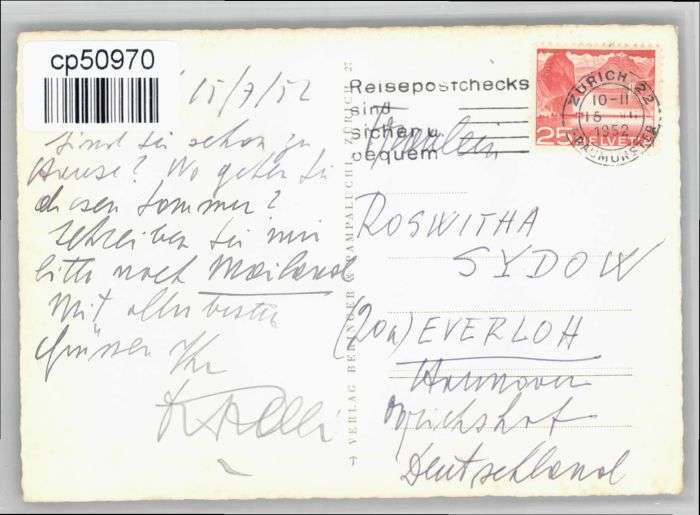 cp50970
15/7/52
Sind Sie schon zu
Hause? Wo gehen Sie
diesen Sommer?
Schreiben Sie mir
bitte nach Mailand
Mit allerbesten
Grüssen Ihr
VERLAG BERINGER & PAMPALUCHI, ZÜRICH 27
Reisepostchecks
sind
sicher u.
bequem
25 HELVETIA
ZÜRICH 22
10-11
1952
FRAUMÜNSTER
Fräulein
ROSWITHA
SYDOW
(20a) EVERLOH
Hannover
Deutschland